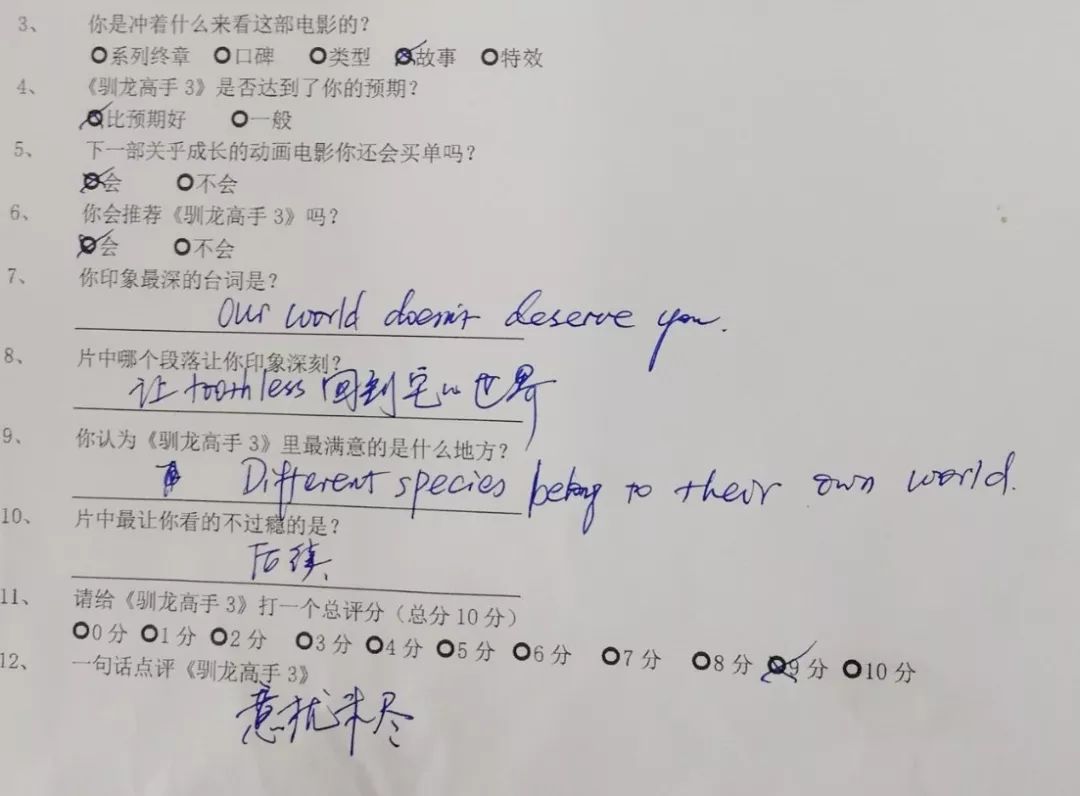 3、 你是冲着什么来看这部电影的？
系列终章 口碑 类型 故事 特效
4、 《驯龙高手 3》是否达到了你的预期？
比预期好 一般
5、 下一部关乎成长的动画电影你还会买单吗？
会 不会
6、 你会推荐《驯龙高手 3》吗？
会 不会
7、 你印象最深的台词是？
Our world doesn't deserve you.
8、 片中哪个段落让你印象深刻？
让 toothless 回到它的世界
9、 你认为《驯龙高手 3》里最满意的是什么地方？
Different species belong to their own world.
10、 片中最让你看的不过瘾的是？
后续.
11、 请给《驯龙高手 3》打一个总评分（总分 10 分）
0 分 1 分 2 分 3 分 4 分 5 分 6 分 7 分 8 分 9 分 10 分
12、 一句话点评《驯龙高手 3》
意犹未尽